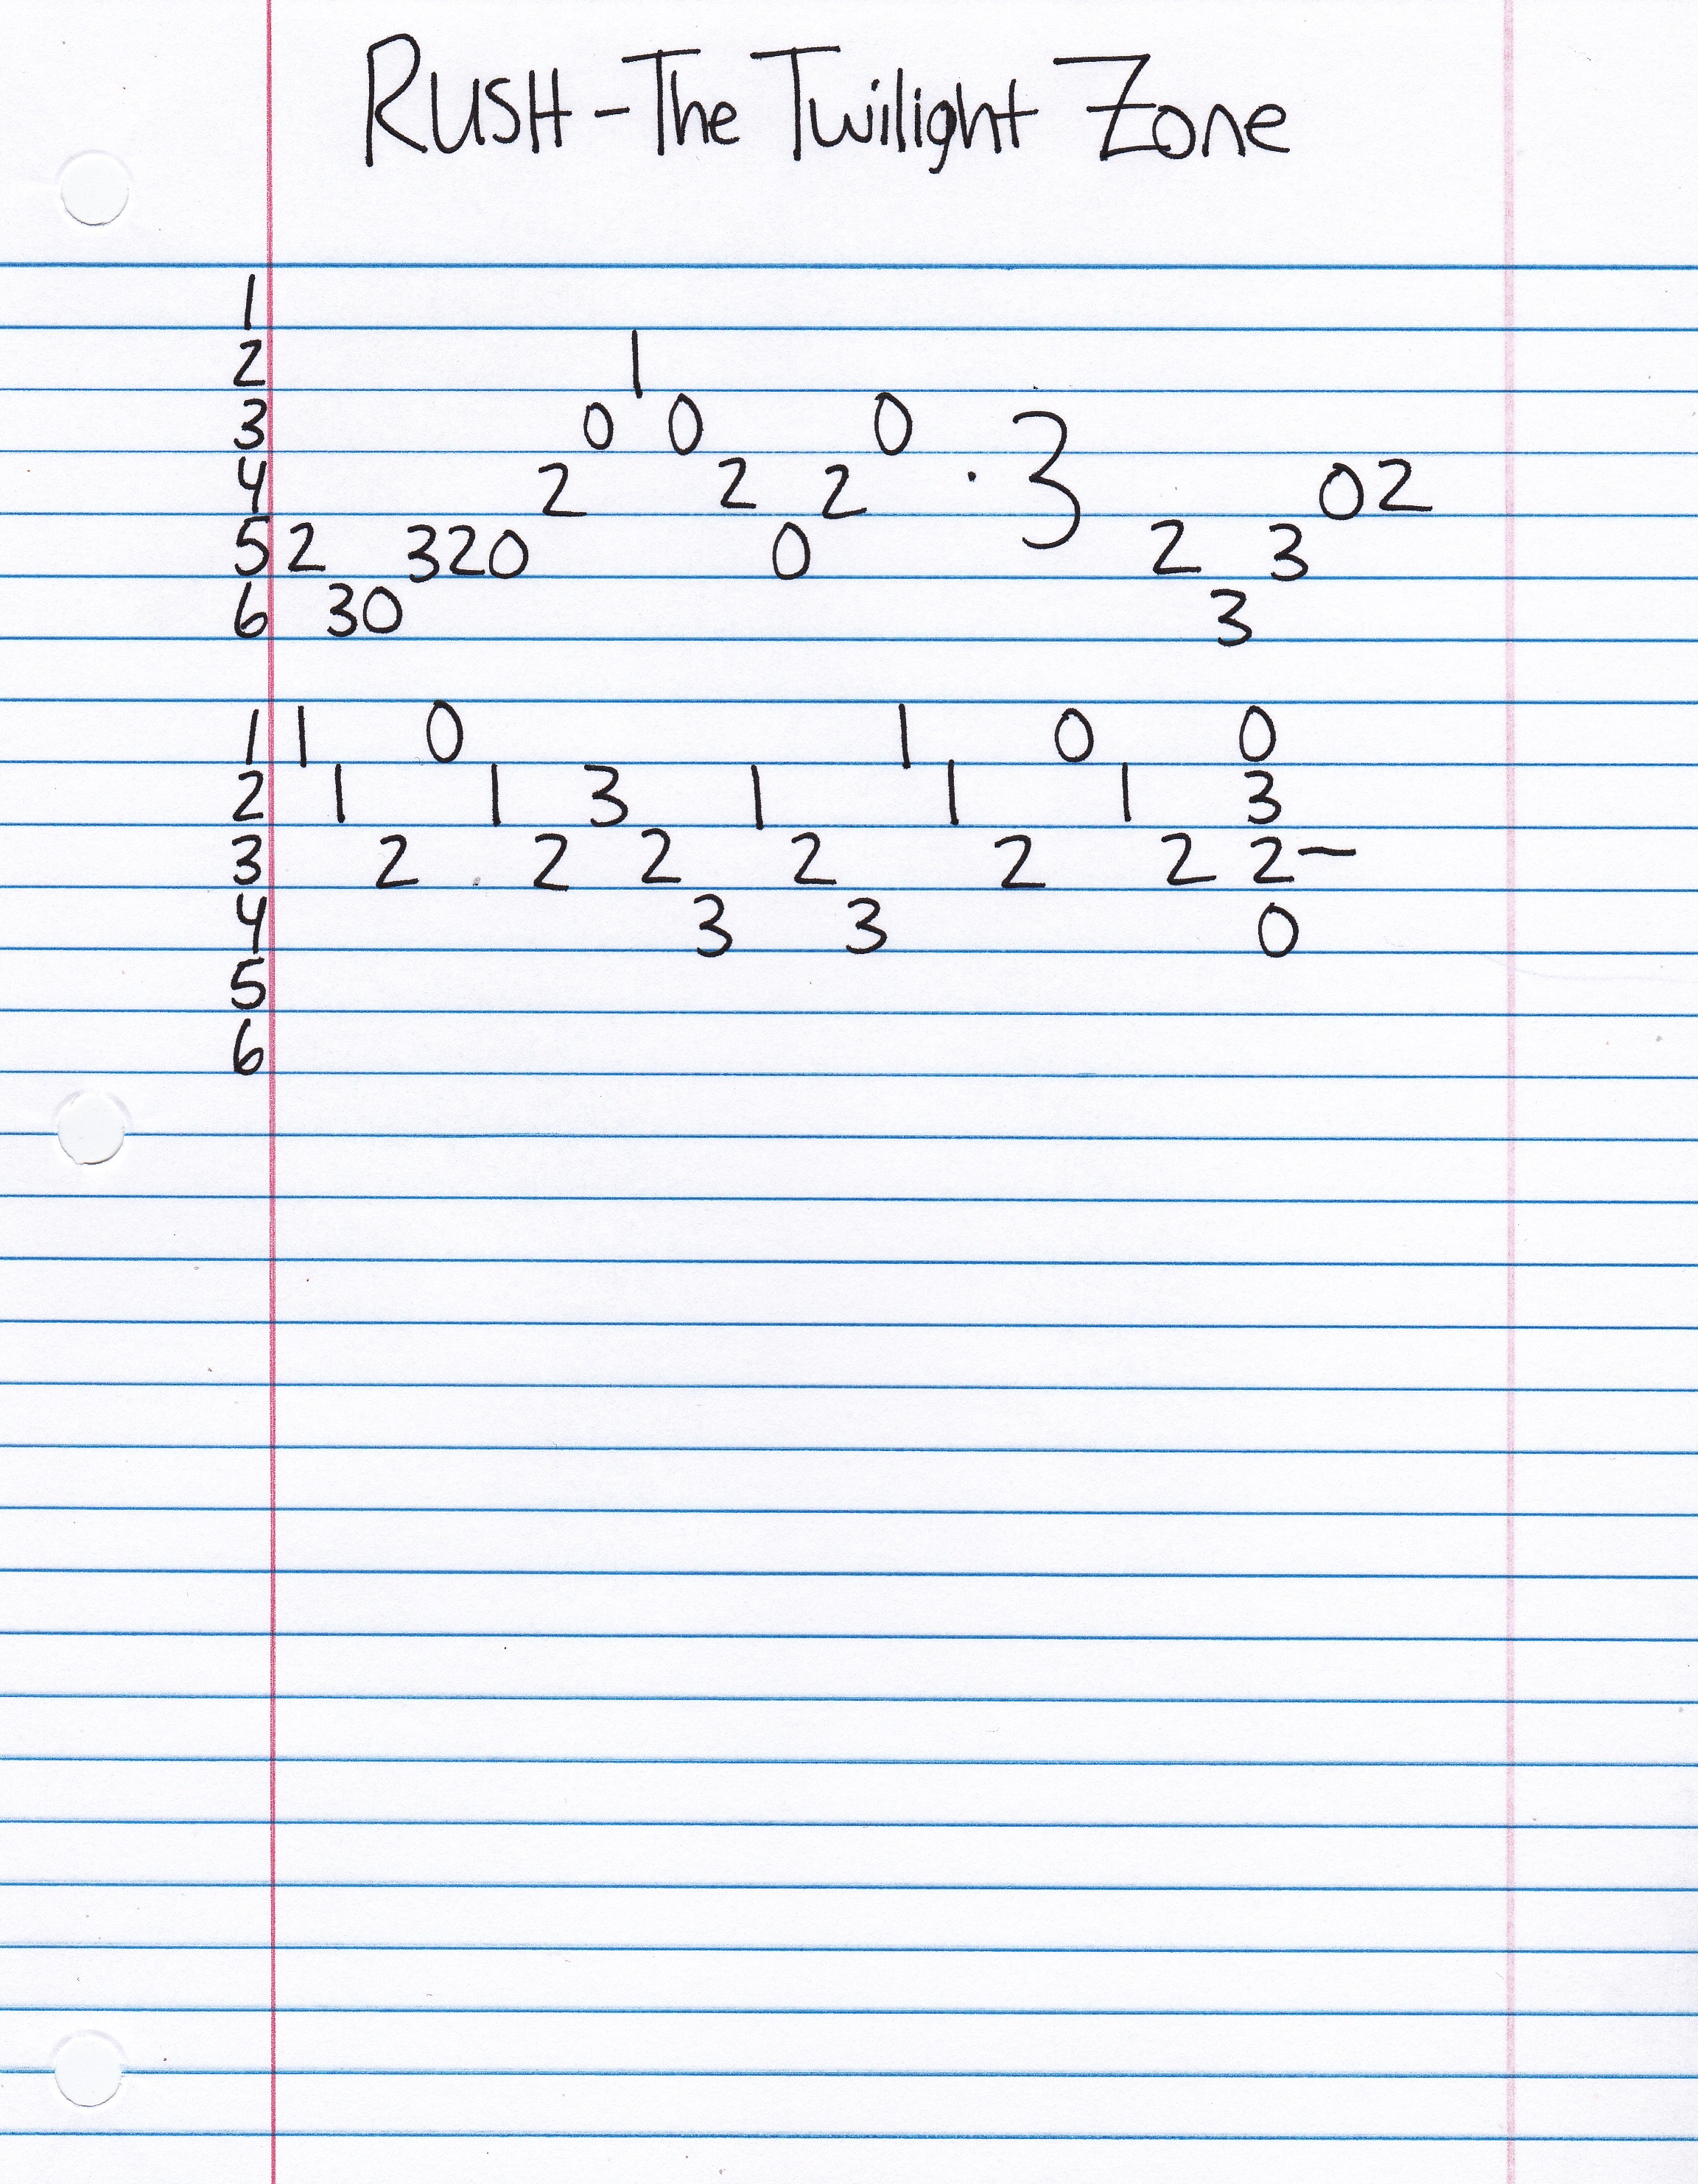 RUSH - The Twilight Zone
1
2 1
3 0 0 0
4 2 2 2 · 3 0 2
5 2 3 2 0 0 2 3
6 3 0 3
1 1 0 1 0 0
2 1 1 3 1 1 1 3
3 2 2 2 2 2 2 2 —
4 3 3 0
5
6